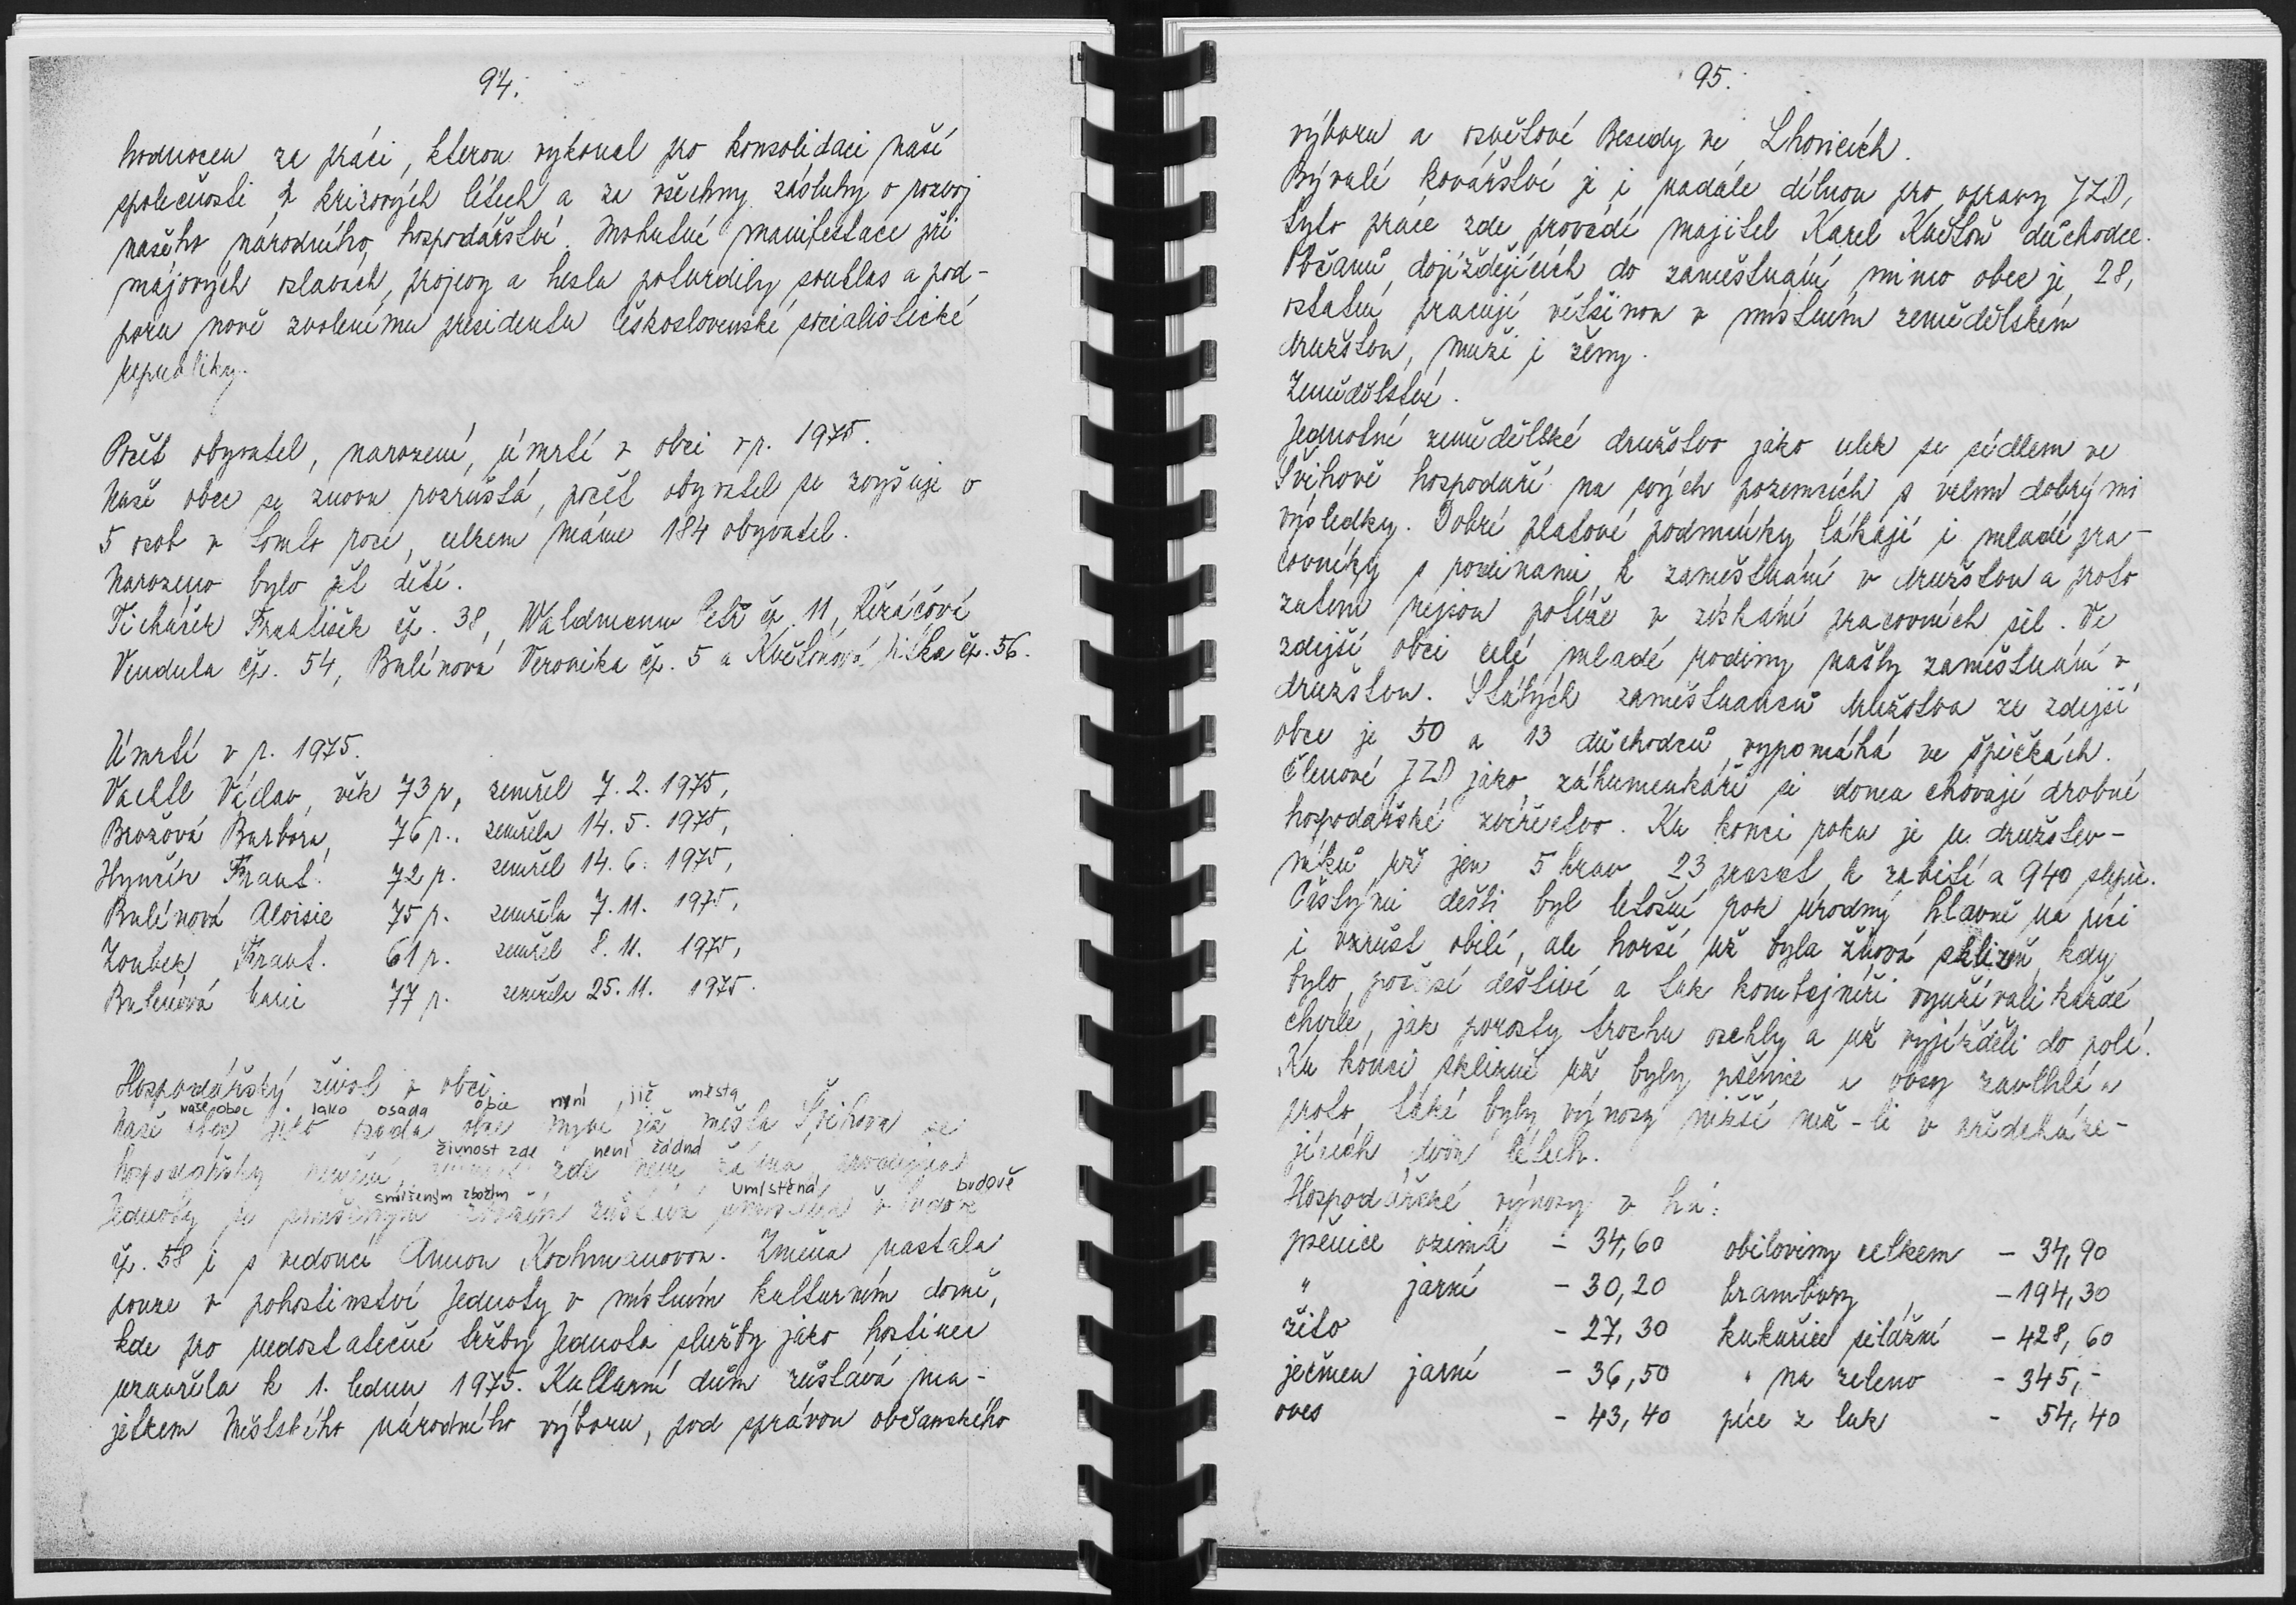 94.
hodnocen za práci, kterou vykonal pro konsolidaci naší
společnosti v krizových létech a za všechny zásluhy o rozvoj
našeho národního hospodářství. Mohutné manifestace při
májových oslavách, projevy a hesla potvrdily souhlas a pod-
poru nově zvolenému presidentu Československé socialistické
republiky.
Počet obyvatel, narození, úmrtí v obci v r. 1975.
Naše obec se znovu rozrůstá, počet obyvatel se zvyšuje o
5 osob v tomto roce, celkem máme 184 obyvatel.
Narozeno bylo pět dětí.
Ticháček František čp. 38, Waldmann Petr čp. 11,
Vendula čp. 54, Bulínová Veronika čp. 5 a Květoňová Jitka čp. 56.
Úmrtí v r. 1975.
Vachtl Václav, věk 73 r, zemřel 7. 2. 1975,
Brožová Barbora, 76 r., zemřela 14. 5. 1975,
Hynčík Frant. 72 r. zemřel 14. 6. 1975,
Bulínová Aloisie 75 r. zemřela 7. 11. 1975,
Zoubek Frant. 61 r. zemřel 8. 11. 1975,
Bulínová Marie 77 r. zemřela 25. 11. 1975.
Hospodářský život v obci
naše obec jako osada obce nyní již města
Naše obec jako osada obce nyní již města Švihova se
živnost zde není žádná
hospodářsky nemění, živnost zde není žádná, prodejna
smíšeným zbožím umístěna budově
Jednoty se smíšeným zbožím zůstává umístěna v budově
čp. 58 i s vedoucí Annou Kochmanovou. Změna nastala
pouze v pohostinství Jednoty v místním kulturním domě,
kde pro nedostatečné tržby Jednota služby jako hostinec
uzavřela k 1. lednu 1975. Kulturní dům zůstává ma-
jetkem Městského národního výboru, pod správou občanského
95.
výboru a osvětové Besedy ve Lhovicích.
Bývalé kovářství je i nadále dílnou pro opravy JZD,
tyto práce zde provádí majitel Karel Květoň důchodce.
Občanů, dojíždějících do zaměstnání mimo obec je 28,
ostatní pracují většinou v místním zemědělském
družstvu, muži i ženy.
Zemědělství.
Jednotné zemědělské družstvo jako celek se sídlem ve
Švihově hospodaří na svých pozemcích s velmi dobrými
výsledky. Dobré platové podmínky lákají i mladé pra-
covníky s rodinami k zaměstnání v družstvu a proto
zatím nejsou potíže v získání pracovních sil. Ve
zdejší obci celé mladé rodiny našly zaměstnání v
družstvu. Stálých zaměstnanců družstva ze zdejší
obce je 50 a 13 důchodců vypomáhá ve špičkách.
Členové JZD jako záhumenkáři si doma chovají drobné
hospodářské zvířectvo. Ku konci roku je u družstev-
níků už jen 5 krav 23 prasat k zabití a 940 slepic.
Častými dešti byl letošní rok úrodný hlavně na píci
i vzrůst obilí, ale horší už byla žňová sklizeň, kdy
bylo počasí deštivé a tak kombajnéři využívali každé
chvíle, jak porosty trochu oschly a už vyjížděli do polí.
Ku konci sklizně už byly pšenice a ovsy zavlhlé a
proto také byly výnosy nižší než-li v předcháze-
jících dvou létech.
Hospodářské výnosy v há:
pšenice ozimá - 34,60 obiloviny celkem - 34,90
" jarní - 30,20 brambory - 194,30
žito - 27,30 kukuřice silážní - 428,60
ječmen jarní - 36,50 " na zeleno - 345,-
oves - 43,40 píce z luk - 54,40